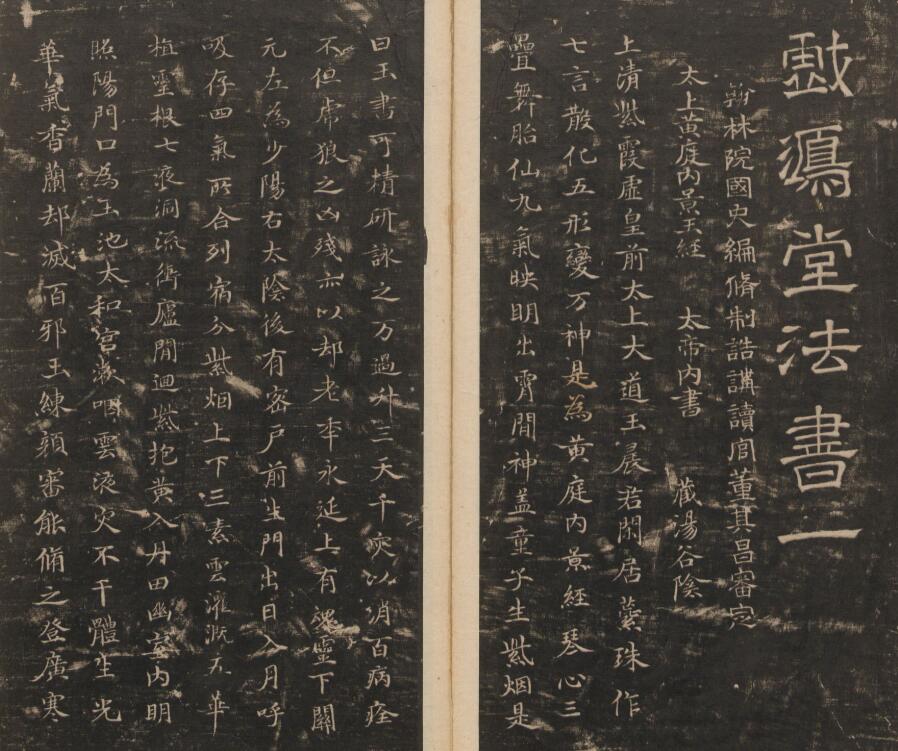 戲鴻堂法書一
翰林院國史編脩制誥講讀官董其昌審定
太上黃庭內景玉經 太帝內書 藏湯谷陰
上清紫霞虛皇前太上大道玉晨君閑居蘂珠作
七言散化五形變万神是為黃庭內景經琴心三
疊舞胎仙九氣映明出霄閒神盖童子生紫烟是
曰玉書可精研詠之万過升三天千灾以消百病痊
不但虎狼之凶殘亦以却老年永延上有魂靈下關
元左為少陽右太陰後有密戶前生門出日入月呼
吸存四氣所合列宿分紫烟上下三素雲灌溉五華
植靈根七液洞流衝廬閒迴紫抱黃入丹田幽室內明
照陽門口為玉池太和宮漱咽靈液灾不干體生光
華氣香蘭却滅百邪玉練顏審能脩之登廣寒